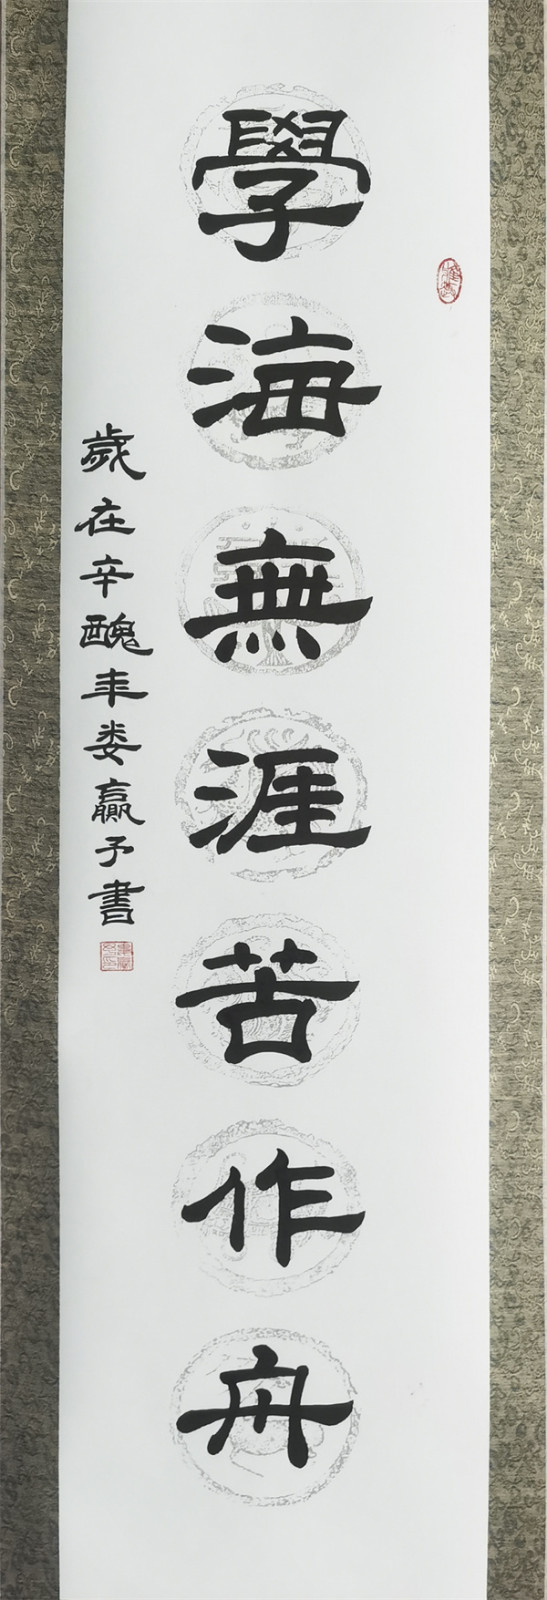 學海無涯苦作舟
歲在辛醜年娄贏予書